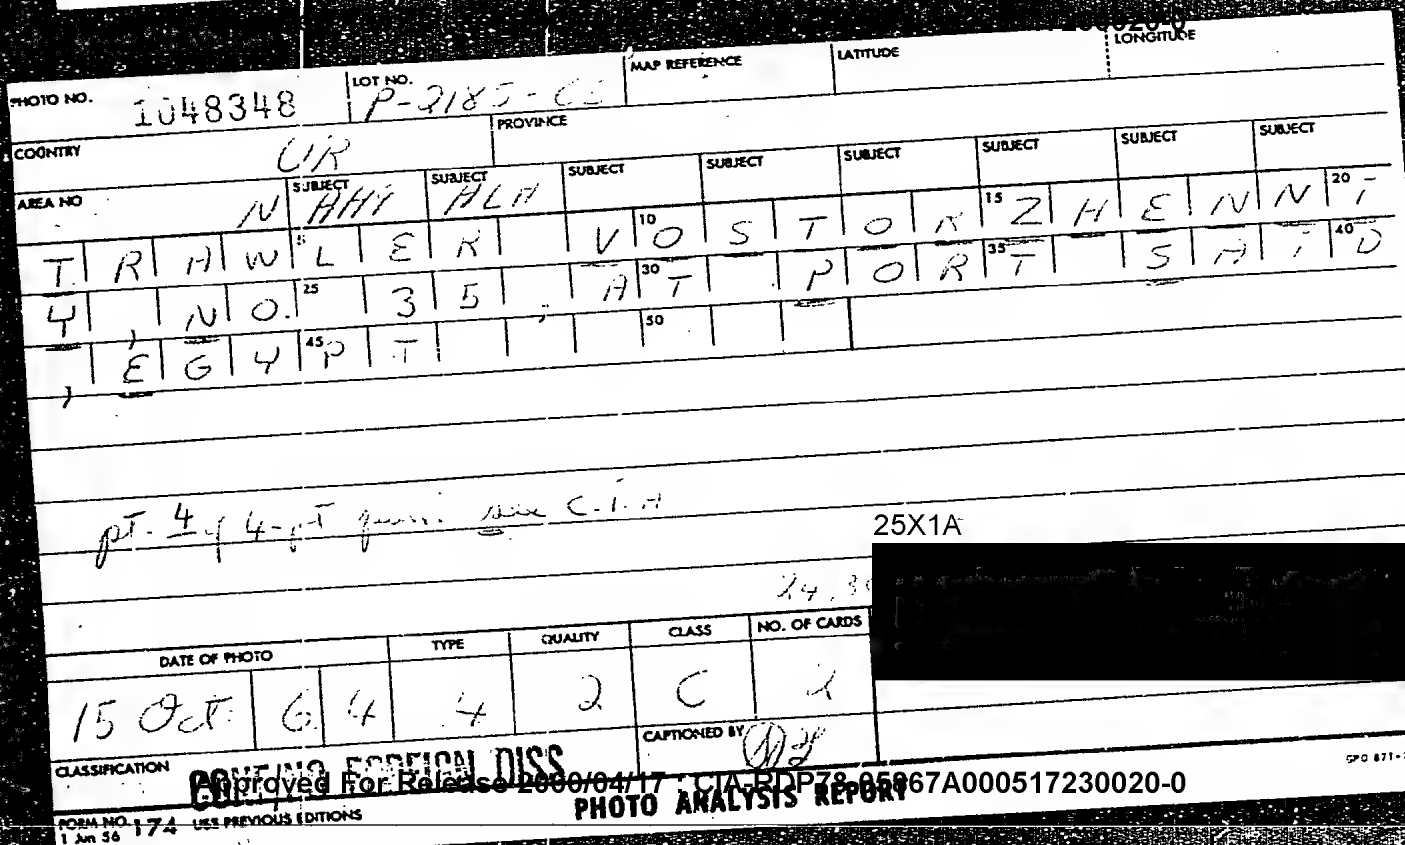 LONGITUDE
PHOTO NO. 1048348 LOT NO. P-2185- MAP REFERENCE LATITUDE
COUNTRY UR PROVINCE
AREA NO N SUBJECT AHY SUBJECT ALA SUBJECT SUBJECT SUBJECT SUBJECT SUBJECT SUBJECT
TRAWLER VOSTOK ZHENNI
5 10 15 20
Y, NO. 35, AT PORT SAID
25 30 35 40
, EGYPT
45 50
pt. 4 of 4-pt see C.I.A
25X1A
DATE OF PHOTO TYPE QUALITY CLASS NO. OF CARDS
15 Oct. 64 4 2 C 2
CAPTIONED BY
CLASSIFICATION CONF/NO FOREIGN DISS
Approved For Release 2000/04/17 : CIA-RDP78-05867A000517230020-0
PHOTO ANALYSIS REPORT
FORM NO. 174 USE PREVIOUS EDITIONS
1 Jun 56
GPO 871-